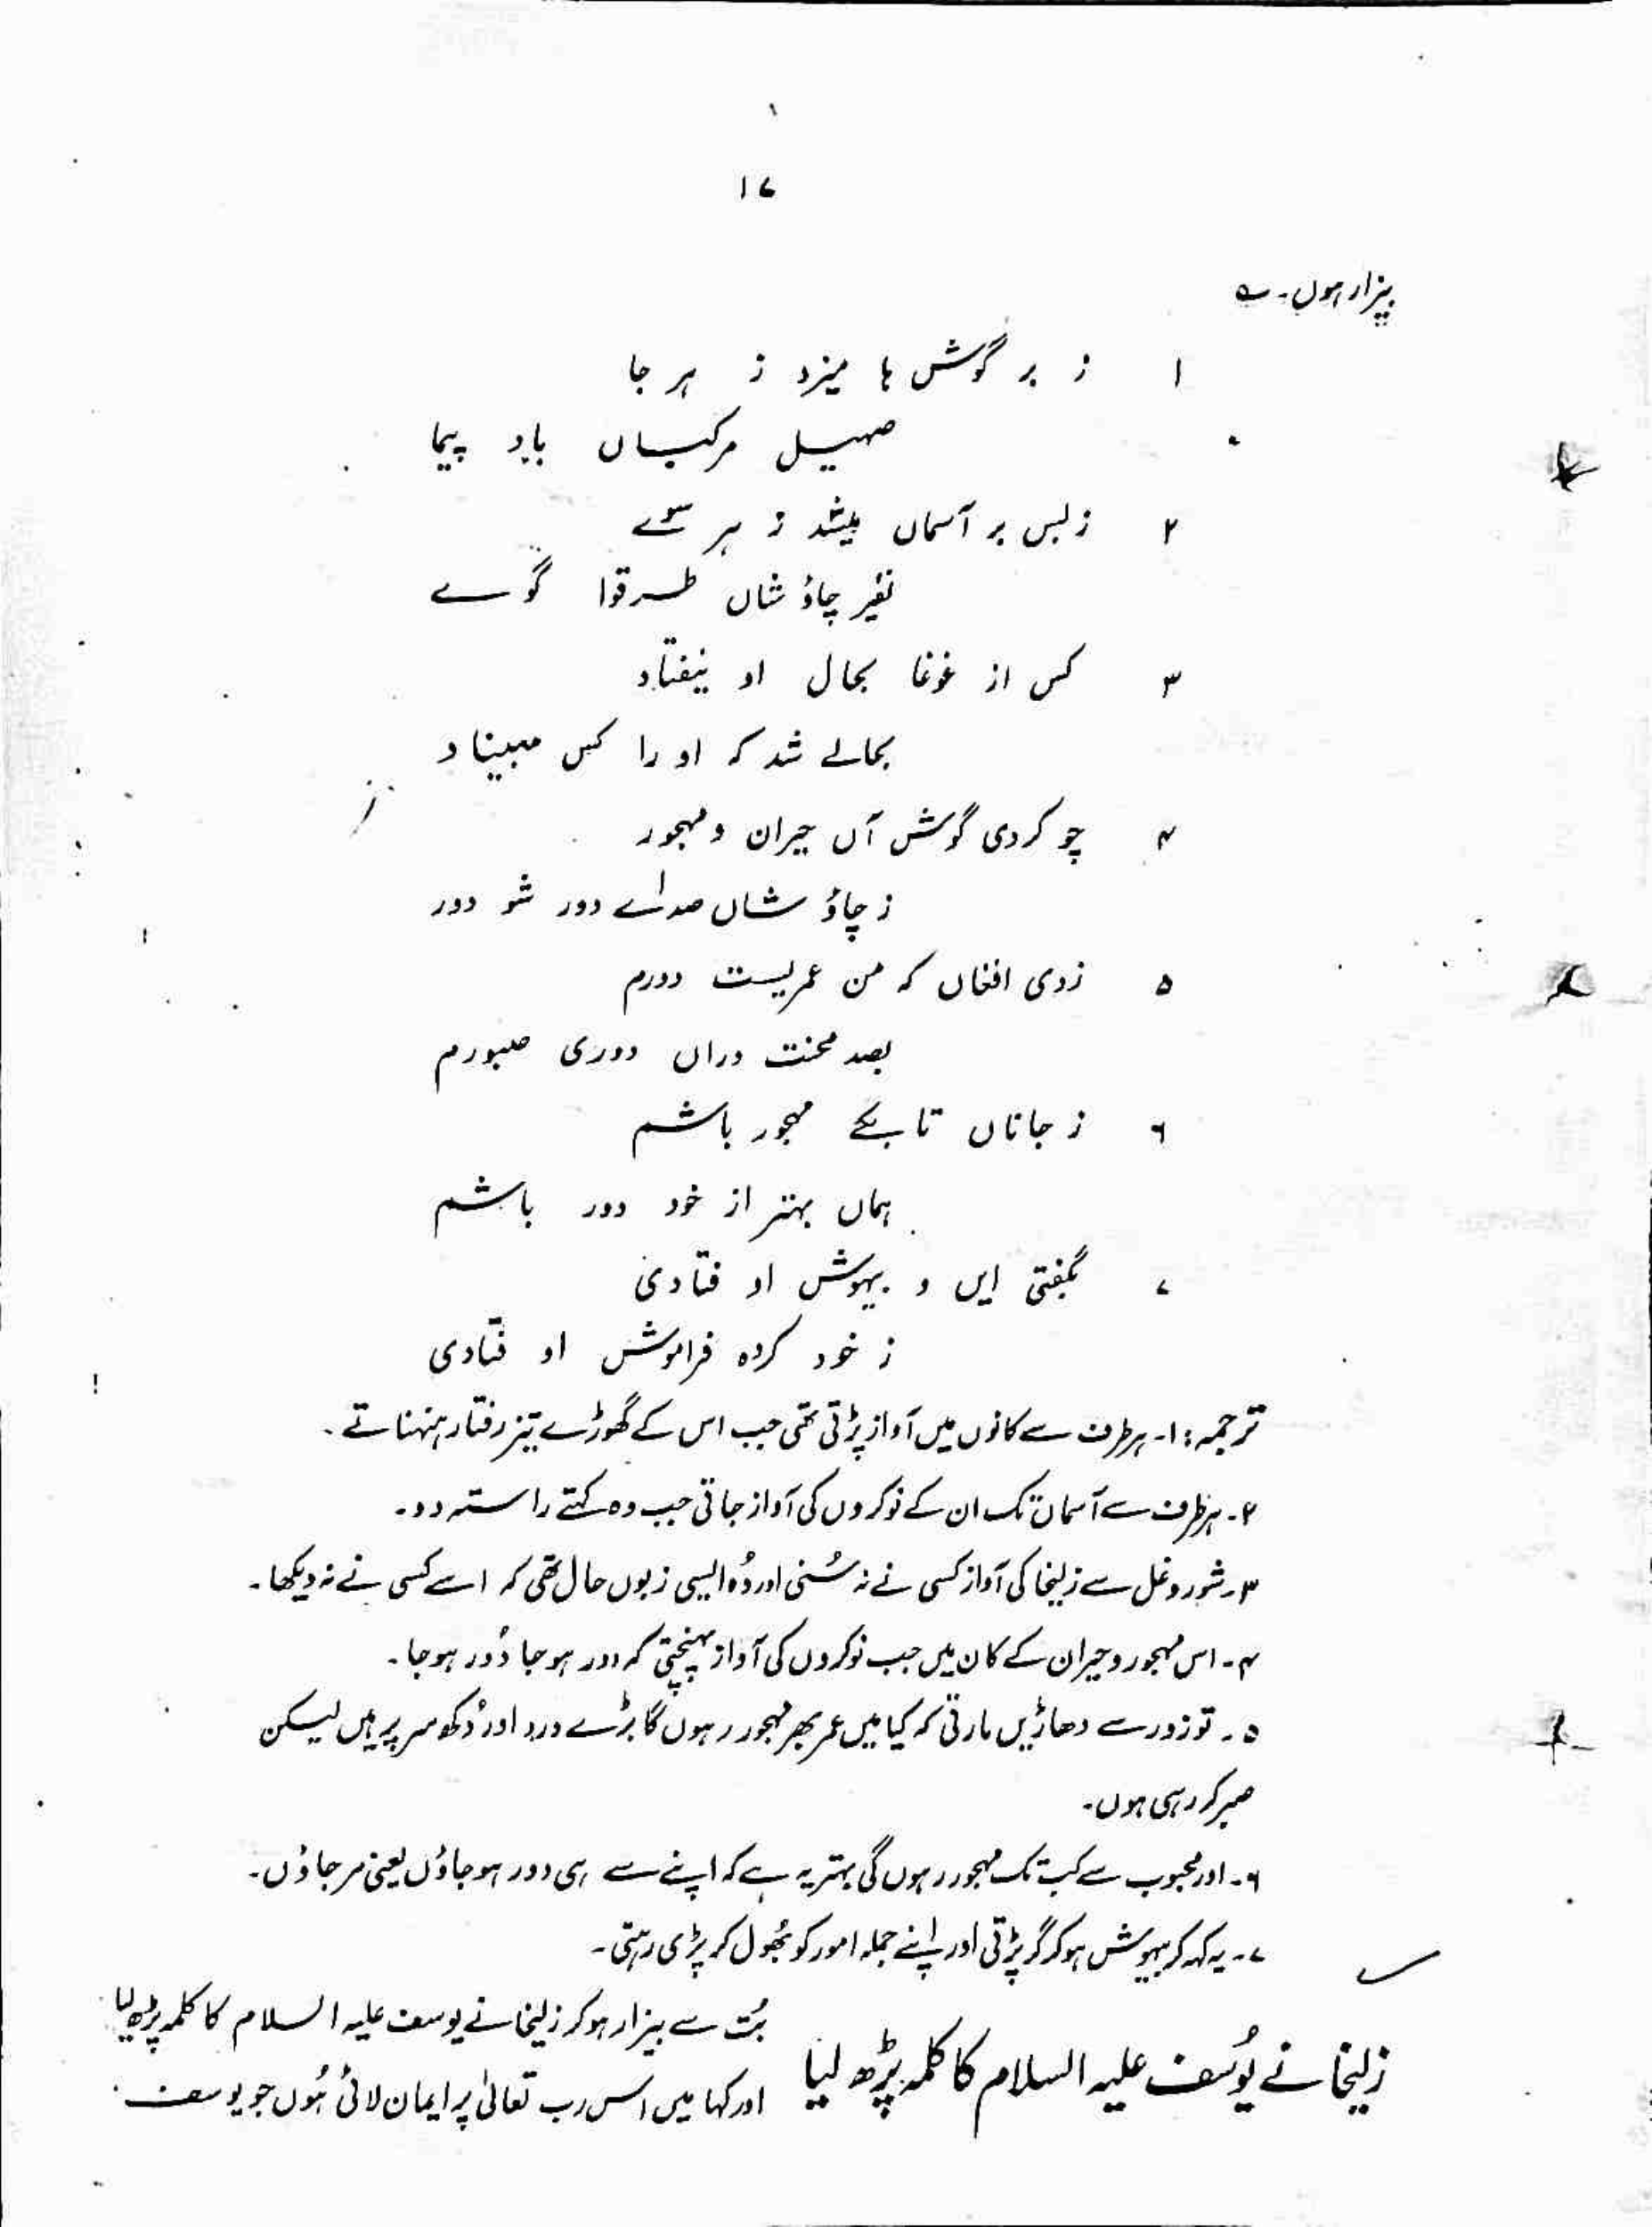 ۱۷
بیزار ہوں۔ ؎
۱ ز بر گوش ہا میزد ز ہر جا
صہیل مرکبان باد پیما
۲ زبس بر آسماں میشد ز ہر سوئے
نفیر چاؤ شاں طرقوا گوے
۳ کس از غوغا بحال او نیفتاد
بحالے شد کہ او را کس مبیناد
۴ چو کردی گوش آں حیران و مہجور
ز چاؤ شاں صدائے دور شو دور
۵ زدی افغاں کہ من عمریست دورم
بصد محنت دراں دوری صبورم
۶ ز جاناں تا بکے مہجور باشم
ہماں بہتر از خود دور باشم
۷ بگفتی ایں و بیہوش او فتادی
ز خود کردہ فراموش او فتادی
ترجمہ: ۱۔ ہر طرف سے کانوں میں آواز پڑتی تھی جب اس کے گھوڑے تیز رفتار ہنہناتے۔
۲۔ ہر طرف سے آسمان تک ان کے نوکروں کی آواز جاتی جب وہ کہتے راستہ دو۔
۳۔ شور و غل سے زلیخا کی آواز کسی نے نہ سُنی اور وُہ ایسی زبوں حال تھی کہ اسے کسی نے نہ دیکھا۔
۴۔ اس مہجور و حیران کے کان میں جب نوکروں کی آواز پہنچتی کہ دور ہو جا دُور ہو جا۔
۵۔ تو زور سے دھاڑیں مارتی کہ کیا میں عمر بھر مہجور رہوں گا بڑے درد اور دُکھ سر پر ہیں لیکن
صبر کر رہی ہوں۔
۶۔ اور محبوب سے کب تک مہجور رہوں گی بہتر یہ ہے کہ اپنے سے ہی دور ہو جاؤں یعنی مر جاؤں۔
۷۔ یہ کہہ کر بیہوش ہو کر گر پڑتی اور اپنے جملہ امور کو بھُول کر پڑی رہتی۔
زلیخا نے یوُسف علیہ السلام کا کلمہ پڑھ لیا
بُت سے بیزار ہو کر زلیخا نے یوسف علیہ السلام کا کلمہ پڑھ لیا
اور کہا میں اس رب تعالیٰ پر ایمان لائی ہُوں جو یوسف